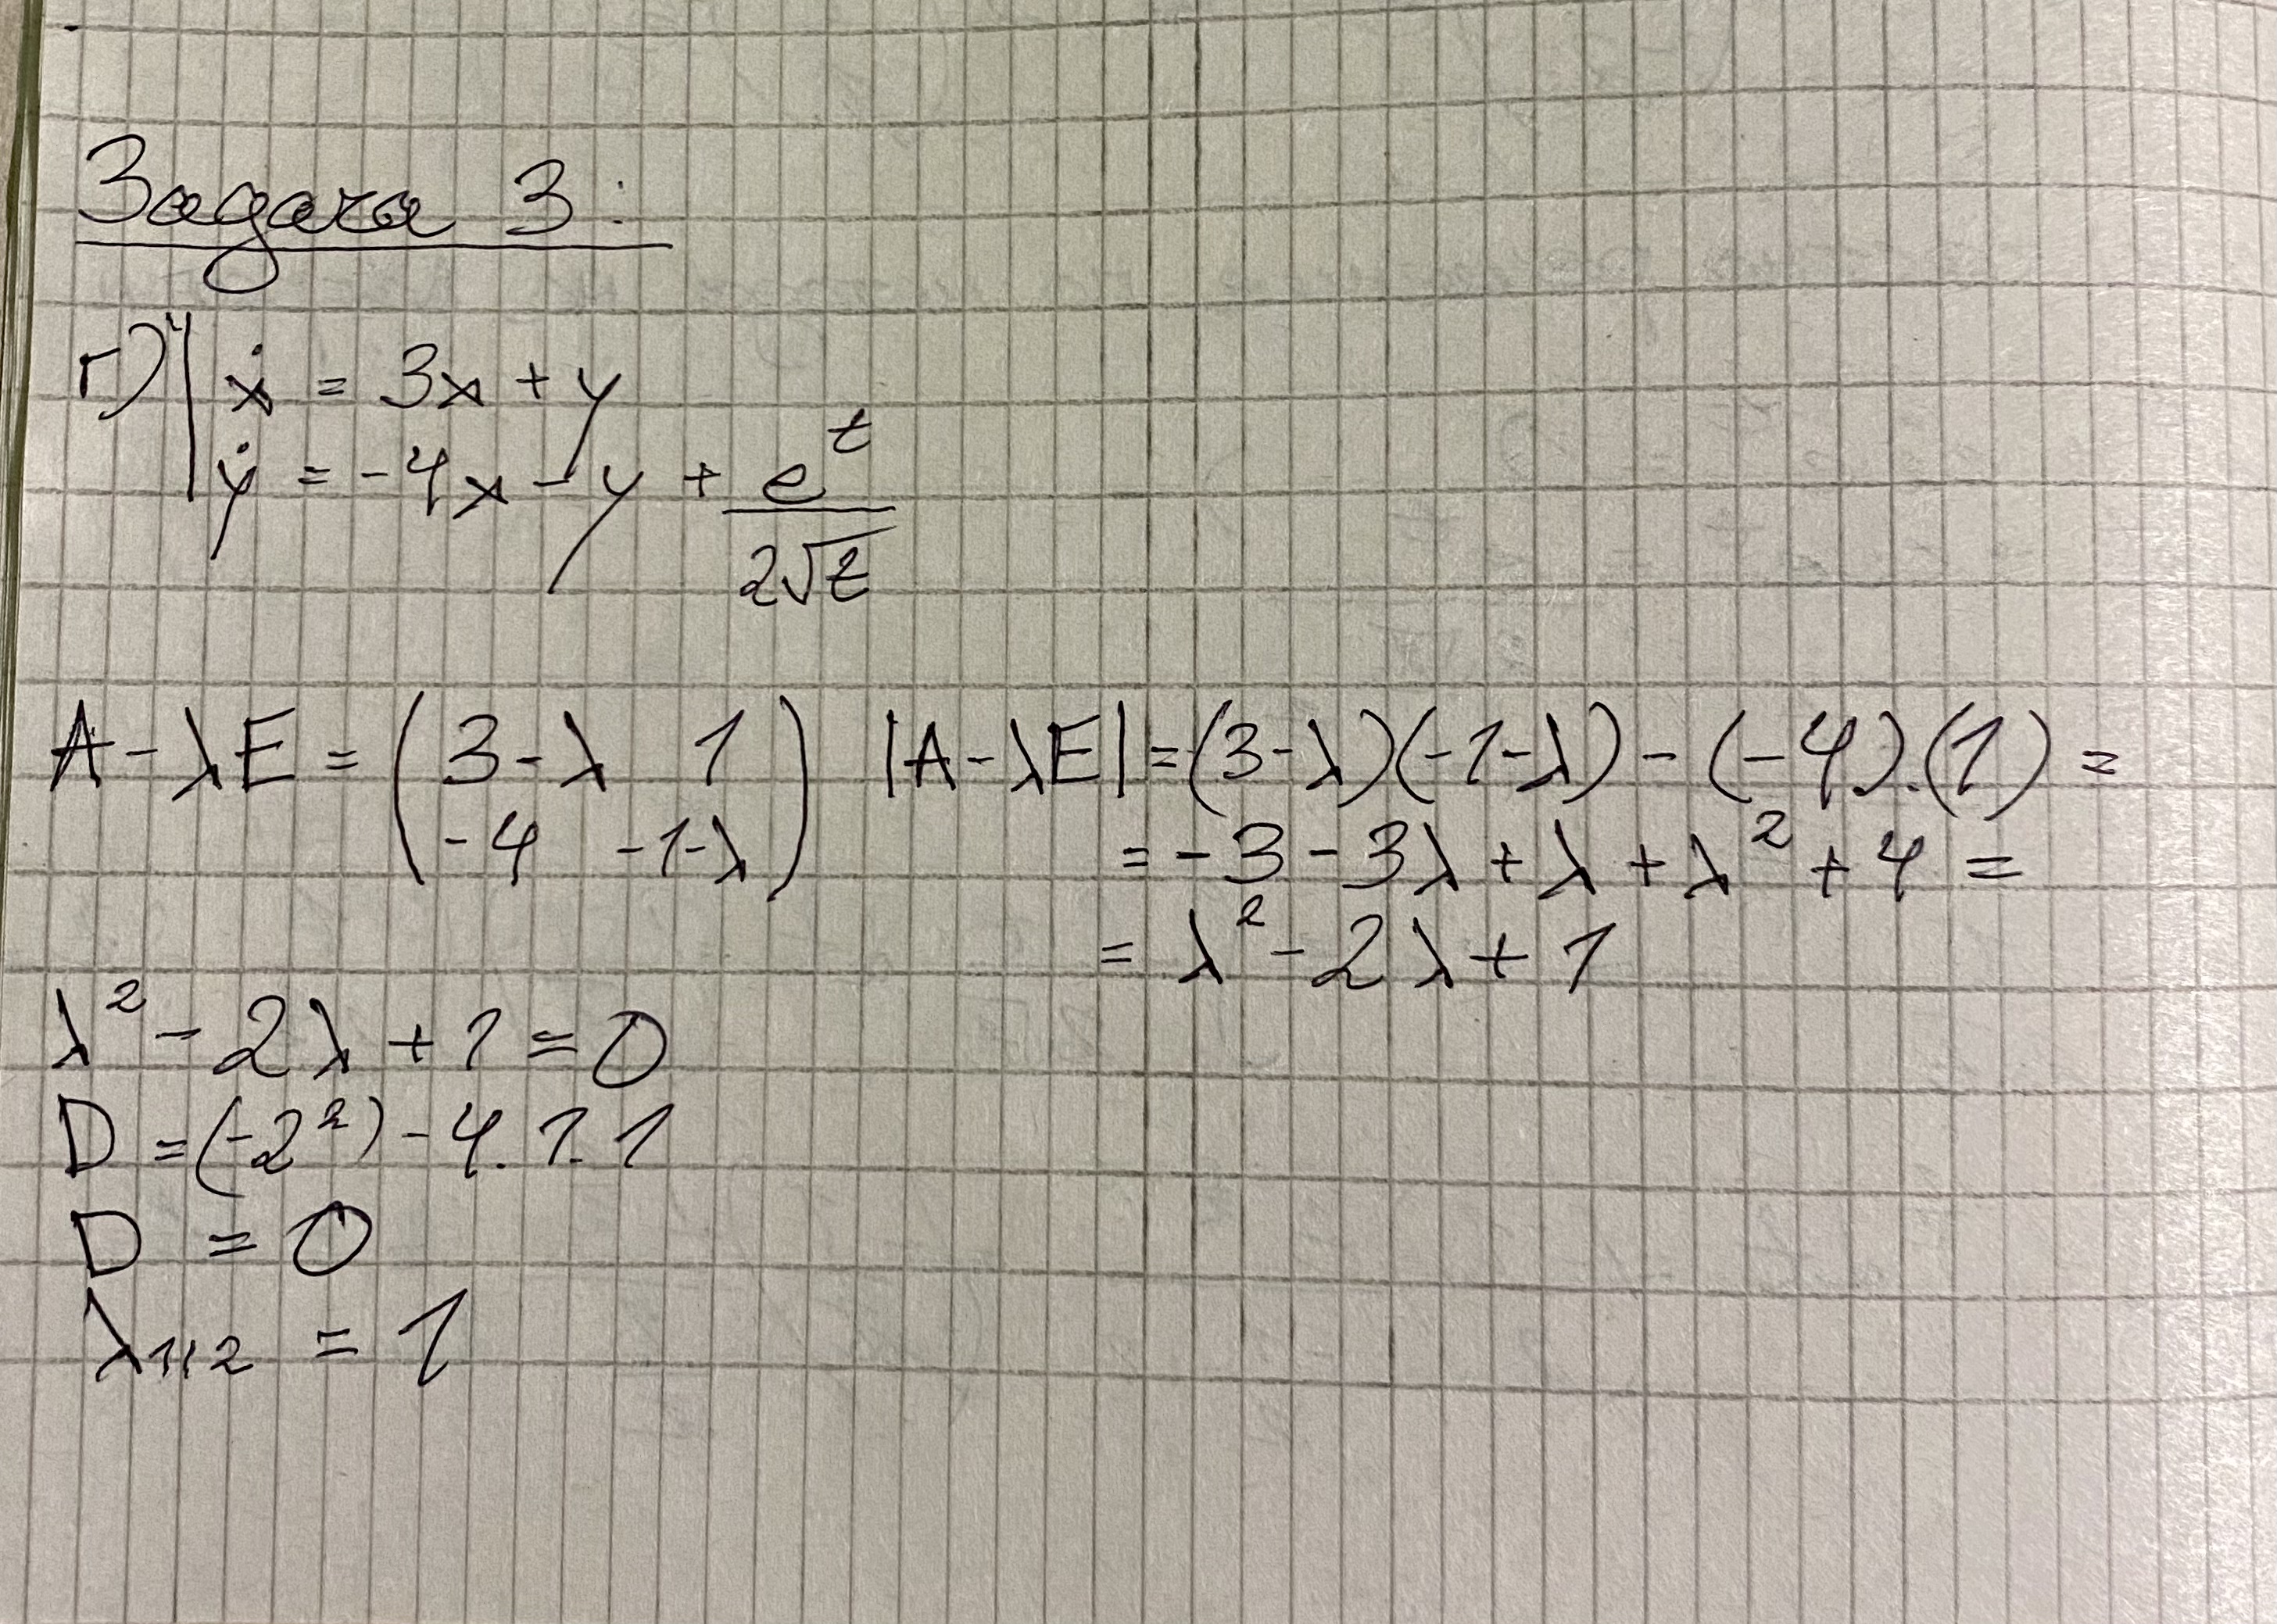 Задача 3:
г) | ẋ = 3x + y
ẏ = -4x - y + e^t / 2√t
A - λE = ( 3-λ 1 ) |A - λE| = (3-λ)(-1-λ) - (-4).(1) =
( -4 -1-λ ) = -3 - 3λ + λ + λ² + 4 =
= λ² - 2λ + 1
λ² - 2λ + 1 = 0
D = (-2²) - 4.1.1
D = 0
λ1,2 = 1